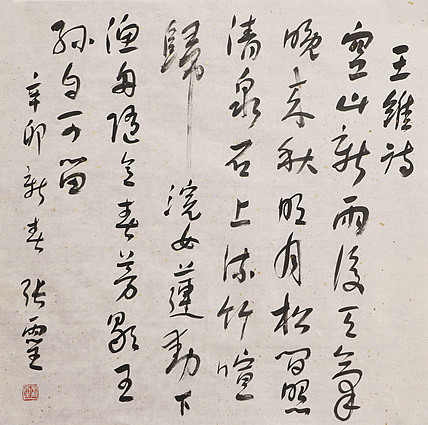 王維詩
空山新雨後天氣
晚来秋明月松間照
清泉石上流竹喧
歸浣女蓮動下
漁舟隨意春芳歇王
孫自可留
辛卯新春 张